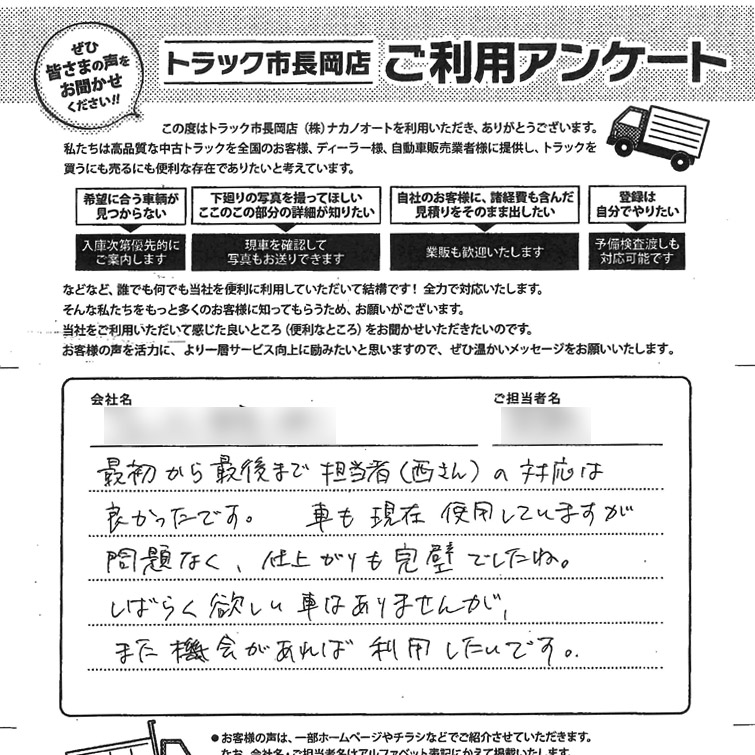 ぜひ
皆さまの声を
お聞かせ
ください!!
トラック市長岡店 ご利用アンケート
この度はトラック市長岡店（株）ナカノオートを利用いただき、ありがとうございます。
私たちは高品質な中古トラックを全国のお客様、ディーラー様、自動車販売業者様に提供し、トラックを
買うにも売るにも便利な存在でありたいと考えています。
希望に合う車輌が
見つからない
入庫次第優先的に
ご案内します
下廻りの写真を撮ってほしい
ここのこの部分の詳細が知りたい
現車を確認して
写真もお送りできます
自社のお客様に、諸経費も含んだ
見積りをそのまま出したい
業販も歓迎いたします
登録は
自分でやりたい
予備検査渡しも
対応可能です
などなど、誰でも何でも当社を便利に利用していただいて結構です！全力で対応いたします。
そんな私たちをもっと多くのお客様に知ってもらうため、お願いがございます。
当社をご利用いただいて感じた良いところ（便利なところ）をお聞かせいただきたいのです。
お客様の声を活力に、より一層サービス向上に励みたいと思いますので、ぜひ温かいメッセージをお願いいたします。
会社名 ご担当者名
最初から最後まで担当者（西さん）の対応は
良かったです。 車も現在使用していますが
問題なく、仕上がりも完璧でしたね。
しばらく欲しい車はありませんが、
また機会があれば利用したいです。
●お客様の声は、一部ホームページやチラシなどでご紹介させていただきます。
なお、会社名・ご担当者名はアルファベット表記にかえて掲載いたします。